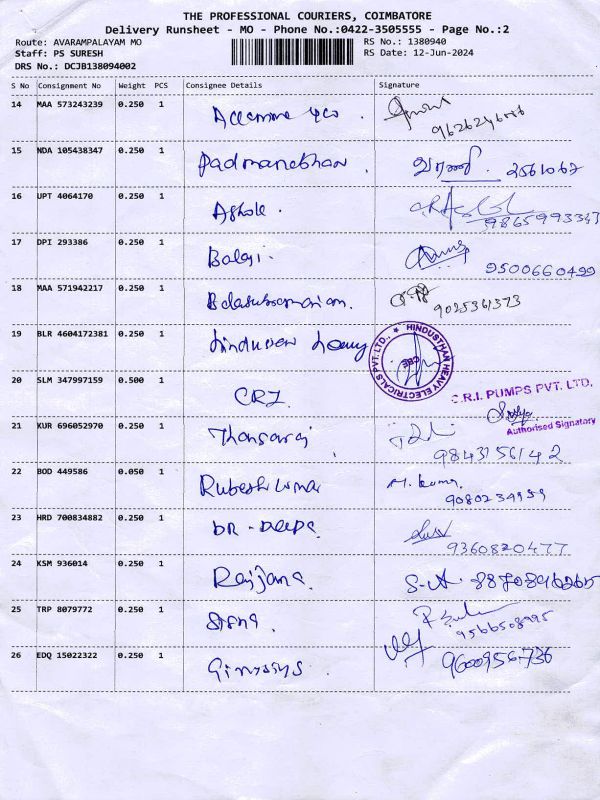 THE PROFESSIONAL COURIERS, COIMBATORE
Delivery Runsheet - MO - Phone No.:0422-3505555 - Page No.:2
Route: AVARAMPALAYAM MO RS No.: 1380940
Staff: PS SURESH RS Date: 12-Jun-2024
DRS No.: DCJB138094002
S No Consignment No Weight PCS Consignee Details Signature
14 MAA 573243239 0.250 1
15 NDA 105438347 0.250 1 Padmanabhan 2561062
16 UPT 4064170 0.250 1 Ashok. 9865993343
17 DPI 293386 0.250 1 Balaji. 9500660499
18 MAA 571942217 0.250 1 Balasubramanian. 9025361373
19 BLR 4604172381 0.250 1 Hindustan Heavy HINDUSTHAN HEAVY ELECTRICALS PVT.LTD., CBE
20 SLM 347997159 0.500 1 CRI C.R.I. PUMPS PVT. LTD.
Authorised Signatory
21 KUR 696052970 0.250 1 Thangaraj 9843156142
22 BOD 449586 0.050 1 Rubesh kumar M. kumar 9080234959
23 HRD 700834882 0.250 1 DR - Deepa. 9360820477
24 KSM 936014 0.250 1 S-A.
25 TRP 8079772 0.250 1 9566508995
26 EDQ 15022322 0.250 1 9600956736